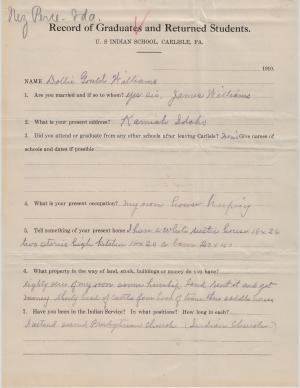 Nez Perce. Ida.
Record of Graduates and Returned Students.
U. S INDIAN SCHOOL, CARLISLE, PA.
1910.
NAME Dollie Gould Williams
1. Are you married and if so to whom? yes sir, James Williams
2. What is your present address? Kamiah Idaho
3. Did you attend or graduate from any other schools after leaving Carlisle? Give names of
schools and dates if possible
4. What is your present occupation? my own house keeping
5. Tell something of your present home I have a white rustic house 18 x 26
two stories high kitchen 16 x 20 a barn
6. What property in the way of land, stock, buildings or money do you have?
eighty acres of my own some land rent it and get
money thirty head of cattle four head of saddle horse
7. Have you been in the Indian Service? In what positions? How long in each?
I attend second Presbyterian Church (Indian Church)